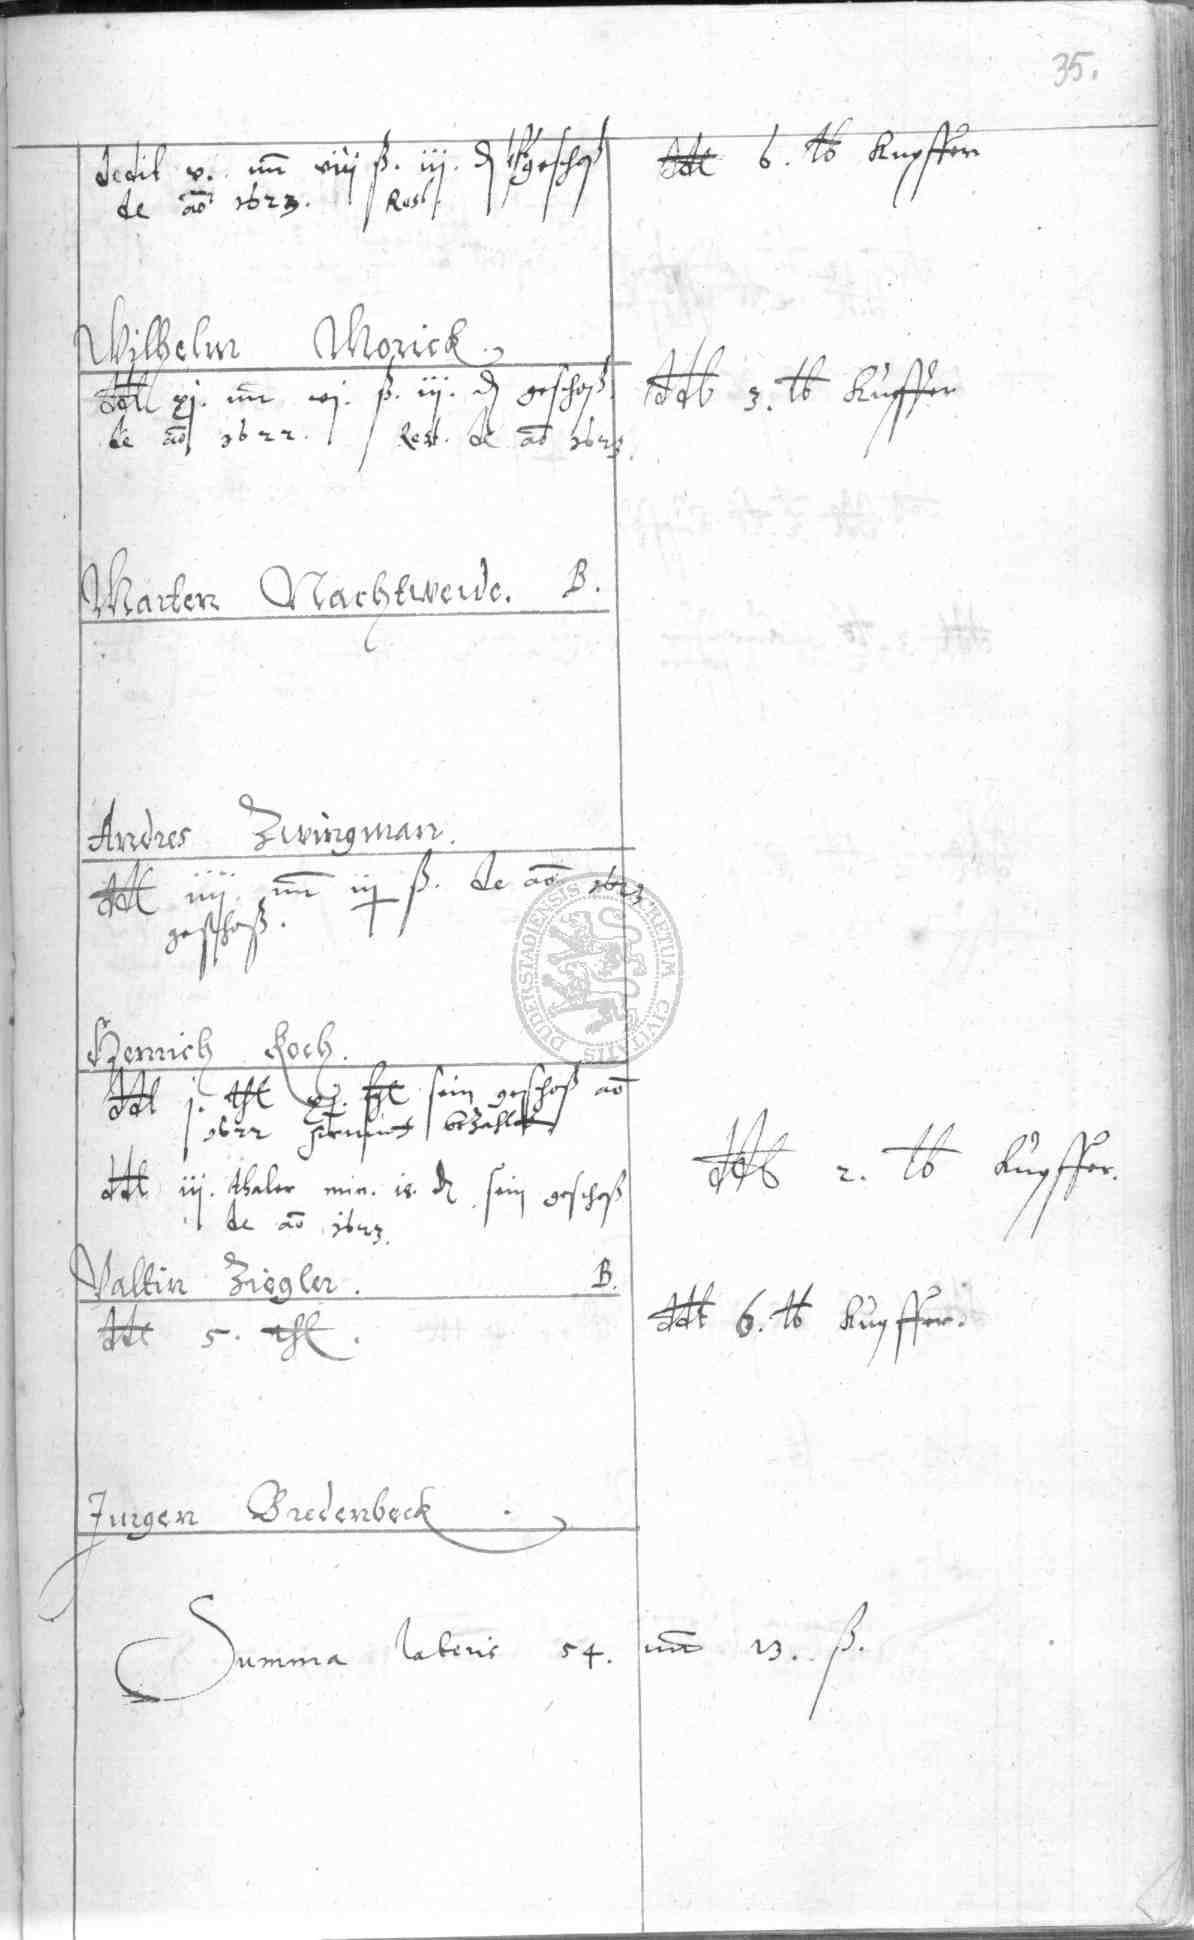 35.
dedit v. mr viij ß. iij. d geschoß ddt 6. lb Kupffer
de ao 1623. Rest.
Wilhelm Morick.
ddt xj. mr vj. ß. iij. d geschoß. ddt 3. lb Kupffer
de ao 1622. Rest. de ao 1623.
Marten Nachtweide. B.
Andres Zwingman.
ddt iiij. mr iij ß. de ao 1623
geschoß.
Henrich Koch.
ddt j. thl sein geschoß ao
1622 bezahlet
ddt iij. thaler min. d sein geschoß ddt 2. lb Kupffer.
de ao 1623.
Valtin Ziegler. B.
ddt 5. thl. ddt 6. lb Kupffer.
Jurgen Bredenbeck.
Summa lateris 54. mr 13. ß.
DUDERSTADIENSIS SECRETUM CIVITATIS